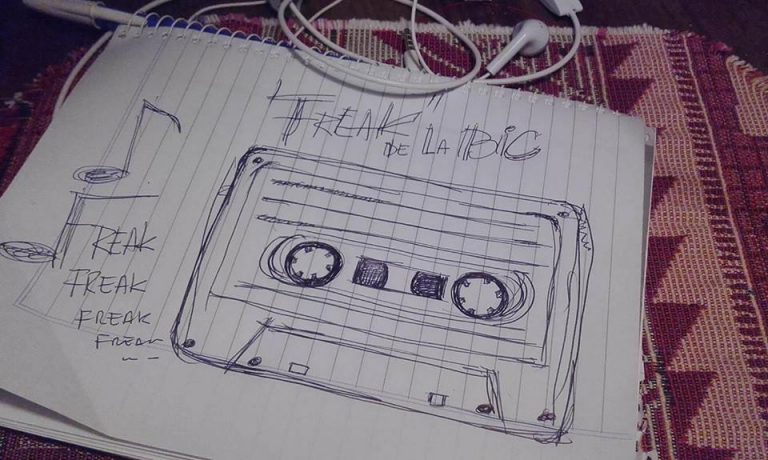 "FREAK"
DE LA BIC
FREAK
FREAK
FREAK
FREAK